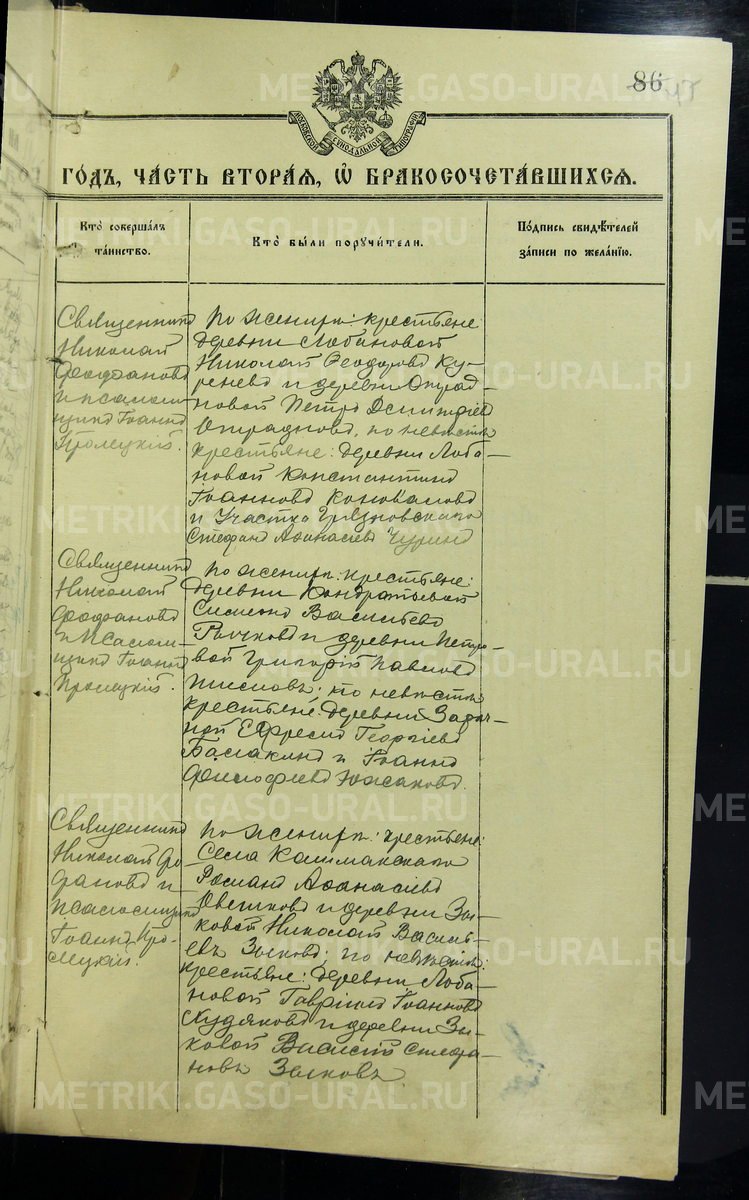 86
МОСКОВСКОЙ СѴНОДАЛЬНОЙ ТИПОГРАФІИ
ГОДЪ, ЧАСТЬ ВТОРАЯ, Ѿ БРАКОСОЧЕТАВШИХСЯ.
Кто совершалъ
таинство.
Кто были поручители.
Подпись свидѣтелей
записи по желанію.
Священникъ
Николай
Феофановъ
и псалом-
щикъ Іоаннъ
по женихѣ: крестьяне
деревни Лобановой
Николай Ѳеодоровъ Ку-
реневъ и деревни Отрад-
новой Петръ Димитріевъ
Отрадновъ, по невѣстѣ
крестьяне: деревни Лоба-
новой Константинъ
Іоанновъ Коноваловъ
и Участка Грязновскаго
Стефанъ Аѳанасіевъ Чуринъ
Священникъ
Николай
Феофановъ
и псалом-
щикъ Іоаннъ
по женихѣ: крестьяне:
деревни Кондратьевой
Симеонъ Васильевъ
и деревни Петро-
вой Григорій Павловъ
по невѣстѣ:
крестьяне: деревни
Георгіевъ
и Іоаннъ
Филофеевъ Южаковъ.
Священникъ
Николай Фео-
фановъ и
псаломщикъ
Іоаннъ
по женихѣ: крестьяне:
Села
Романъ Аѳанасіевъ
и деревни Зы-
ковой Николай Василь-
евъ Зыковъ; по невѣстѣ:
крестьяне: деревни Лоба-
новой Гавріилъ Іоанновъ
Худяковъ и деревни Зы-
ковой Василій Стефа-
новъ Зыковъ.
METRIKI.GASO-URAL.RU